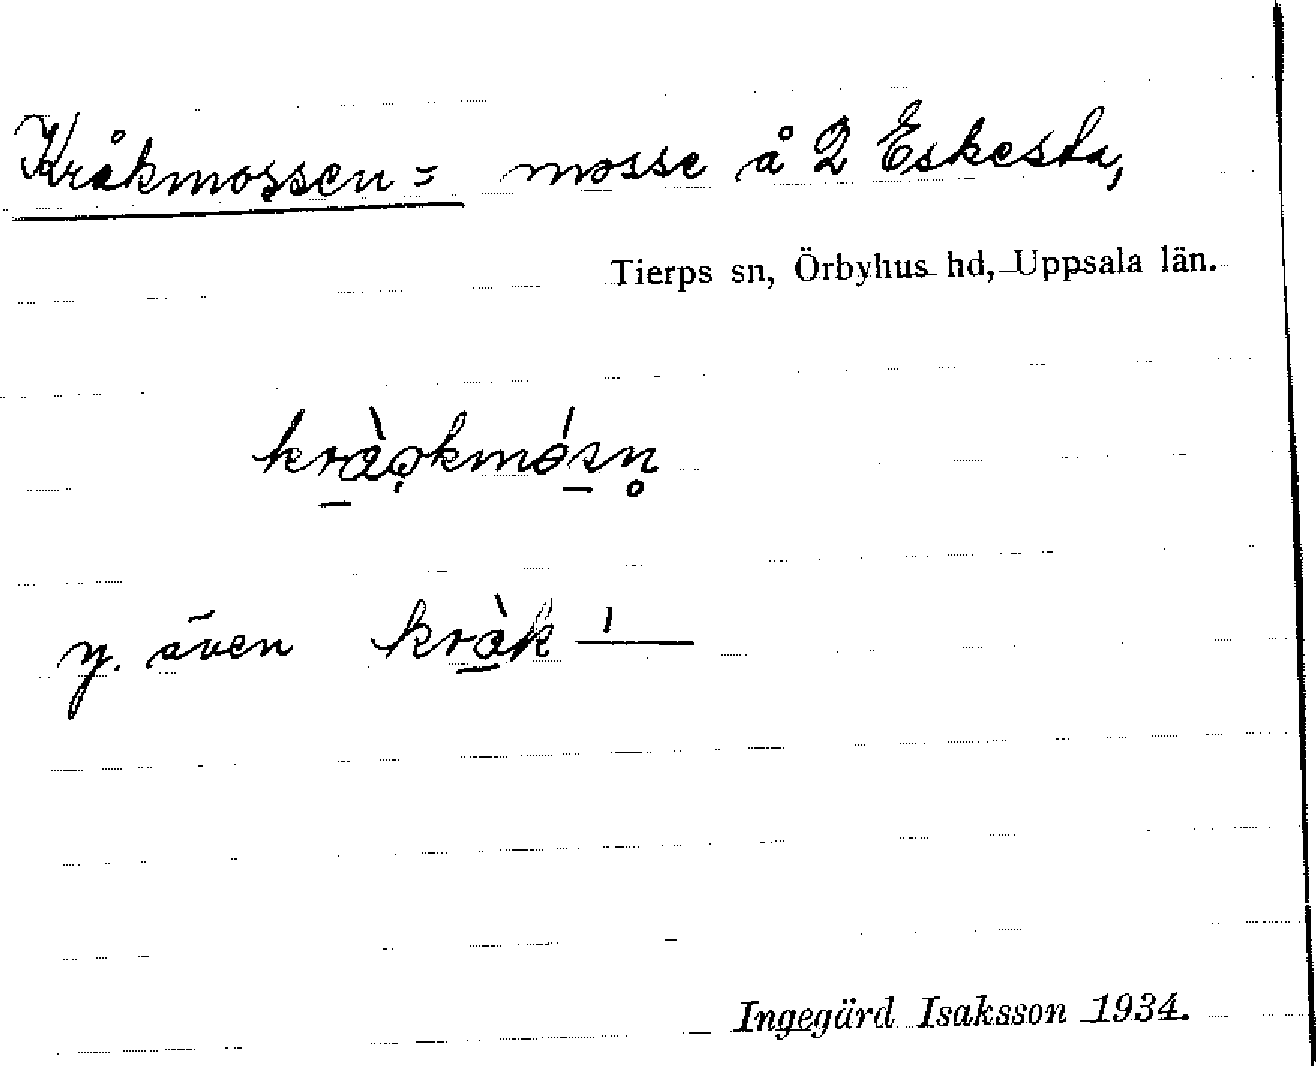 Kråkmossen = mosse å 2 Eskesta,
Tierps sn, Örbyhus hd, Uppsala län.
kràǫkmósn̥
y. även kràk –́
Ingegärd Isaksson 1934.